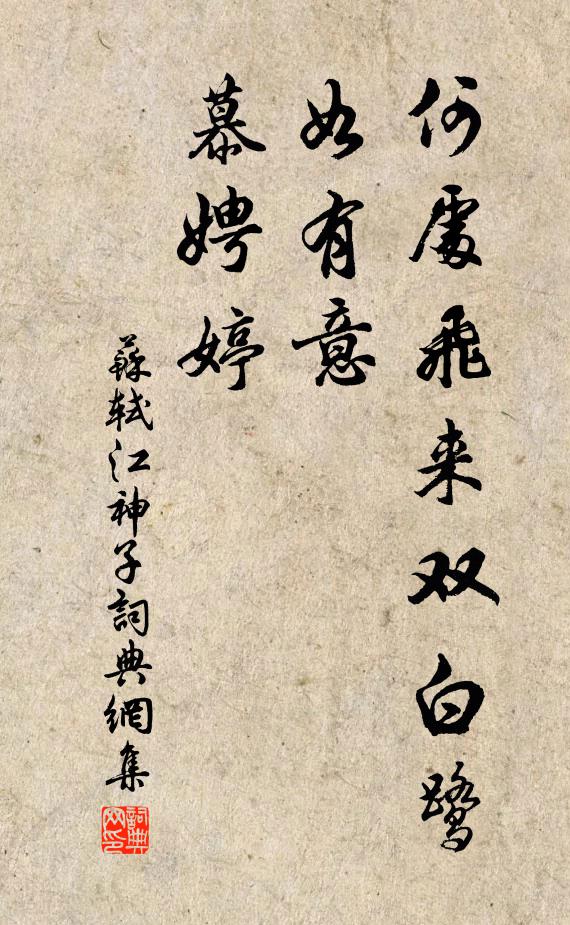 何處飛来双白鷺
如有意
慕娉婷
蘇軾江神子詞典網集
詞典网印